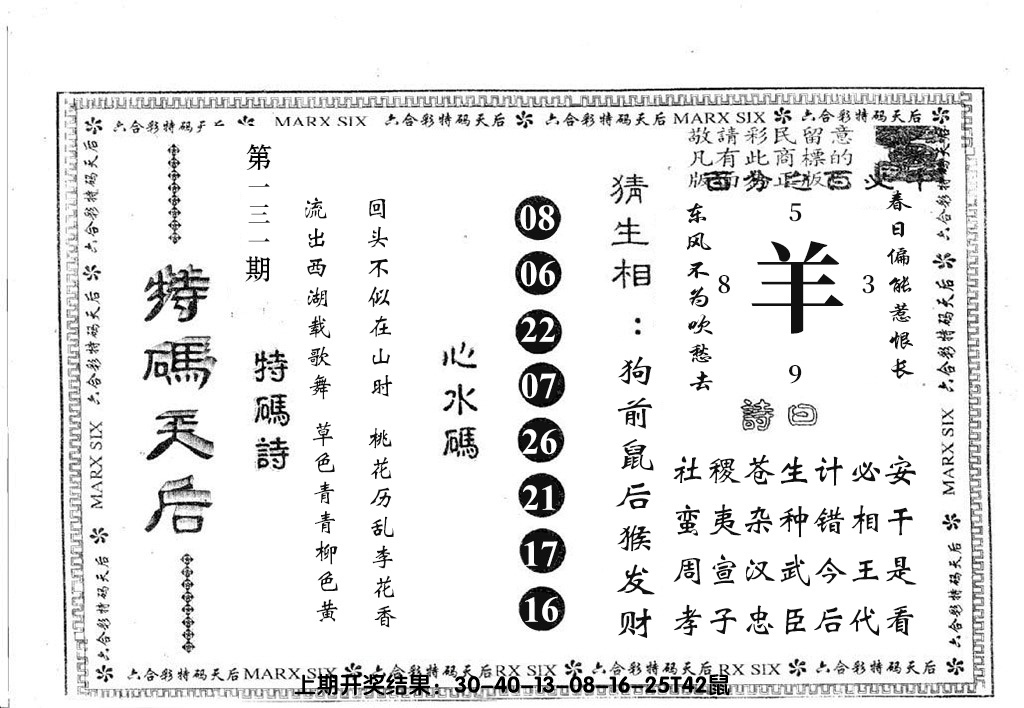 六合彩特码天后 MARX SIX 六合彩特码天后 六合彩特码天后 MARX SIX 六合彩特码天后
敬請彩民留意
凡有此商標的
版面為正版
春日偏能惹恨长
5
8 羊 3
9
东风不为吹愁去
詩曰
社稷苍生计必安
蛮夷杂种错相干
周宣汉武今王是
孝子忠臣后代看
猜生相：狗前鼠后猴发财
08
06
22
07
26
21
17
16
心水碼
回头不似在山时 桃花历乱李花香
流出西湖载歌舞 草色青青柳色黄
特碼詩
第一三一期
特碼天后
六合彩特码天后 六合彩特码天后 MARX SIX 六合彩特码天后
六合彩特码天后 六合彩特码天后 MARX SIX 六合彩特码天后
六合彩特码天后 MARX SIX 六合彩特码天后 RX SIX 六合彩特码天后 RX SIX 六合彩特码天后
上期开奖结果：30-40-13-08-16-25T42鼠